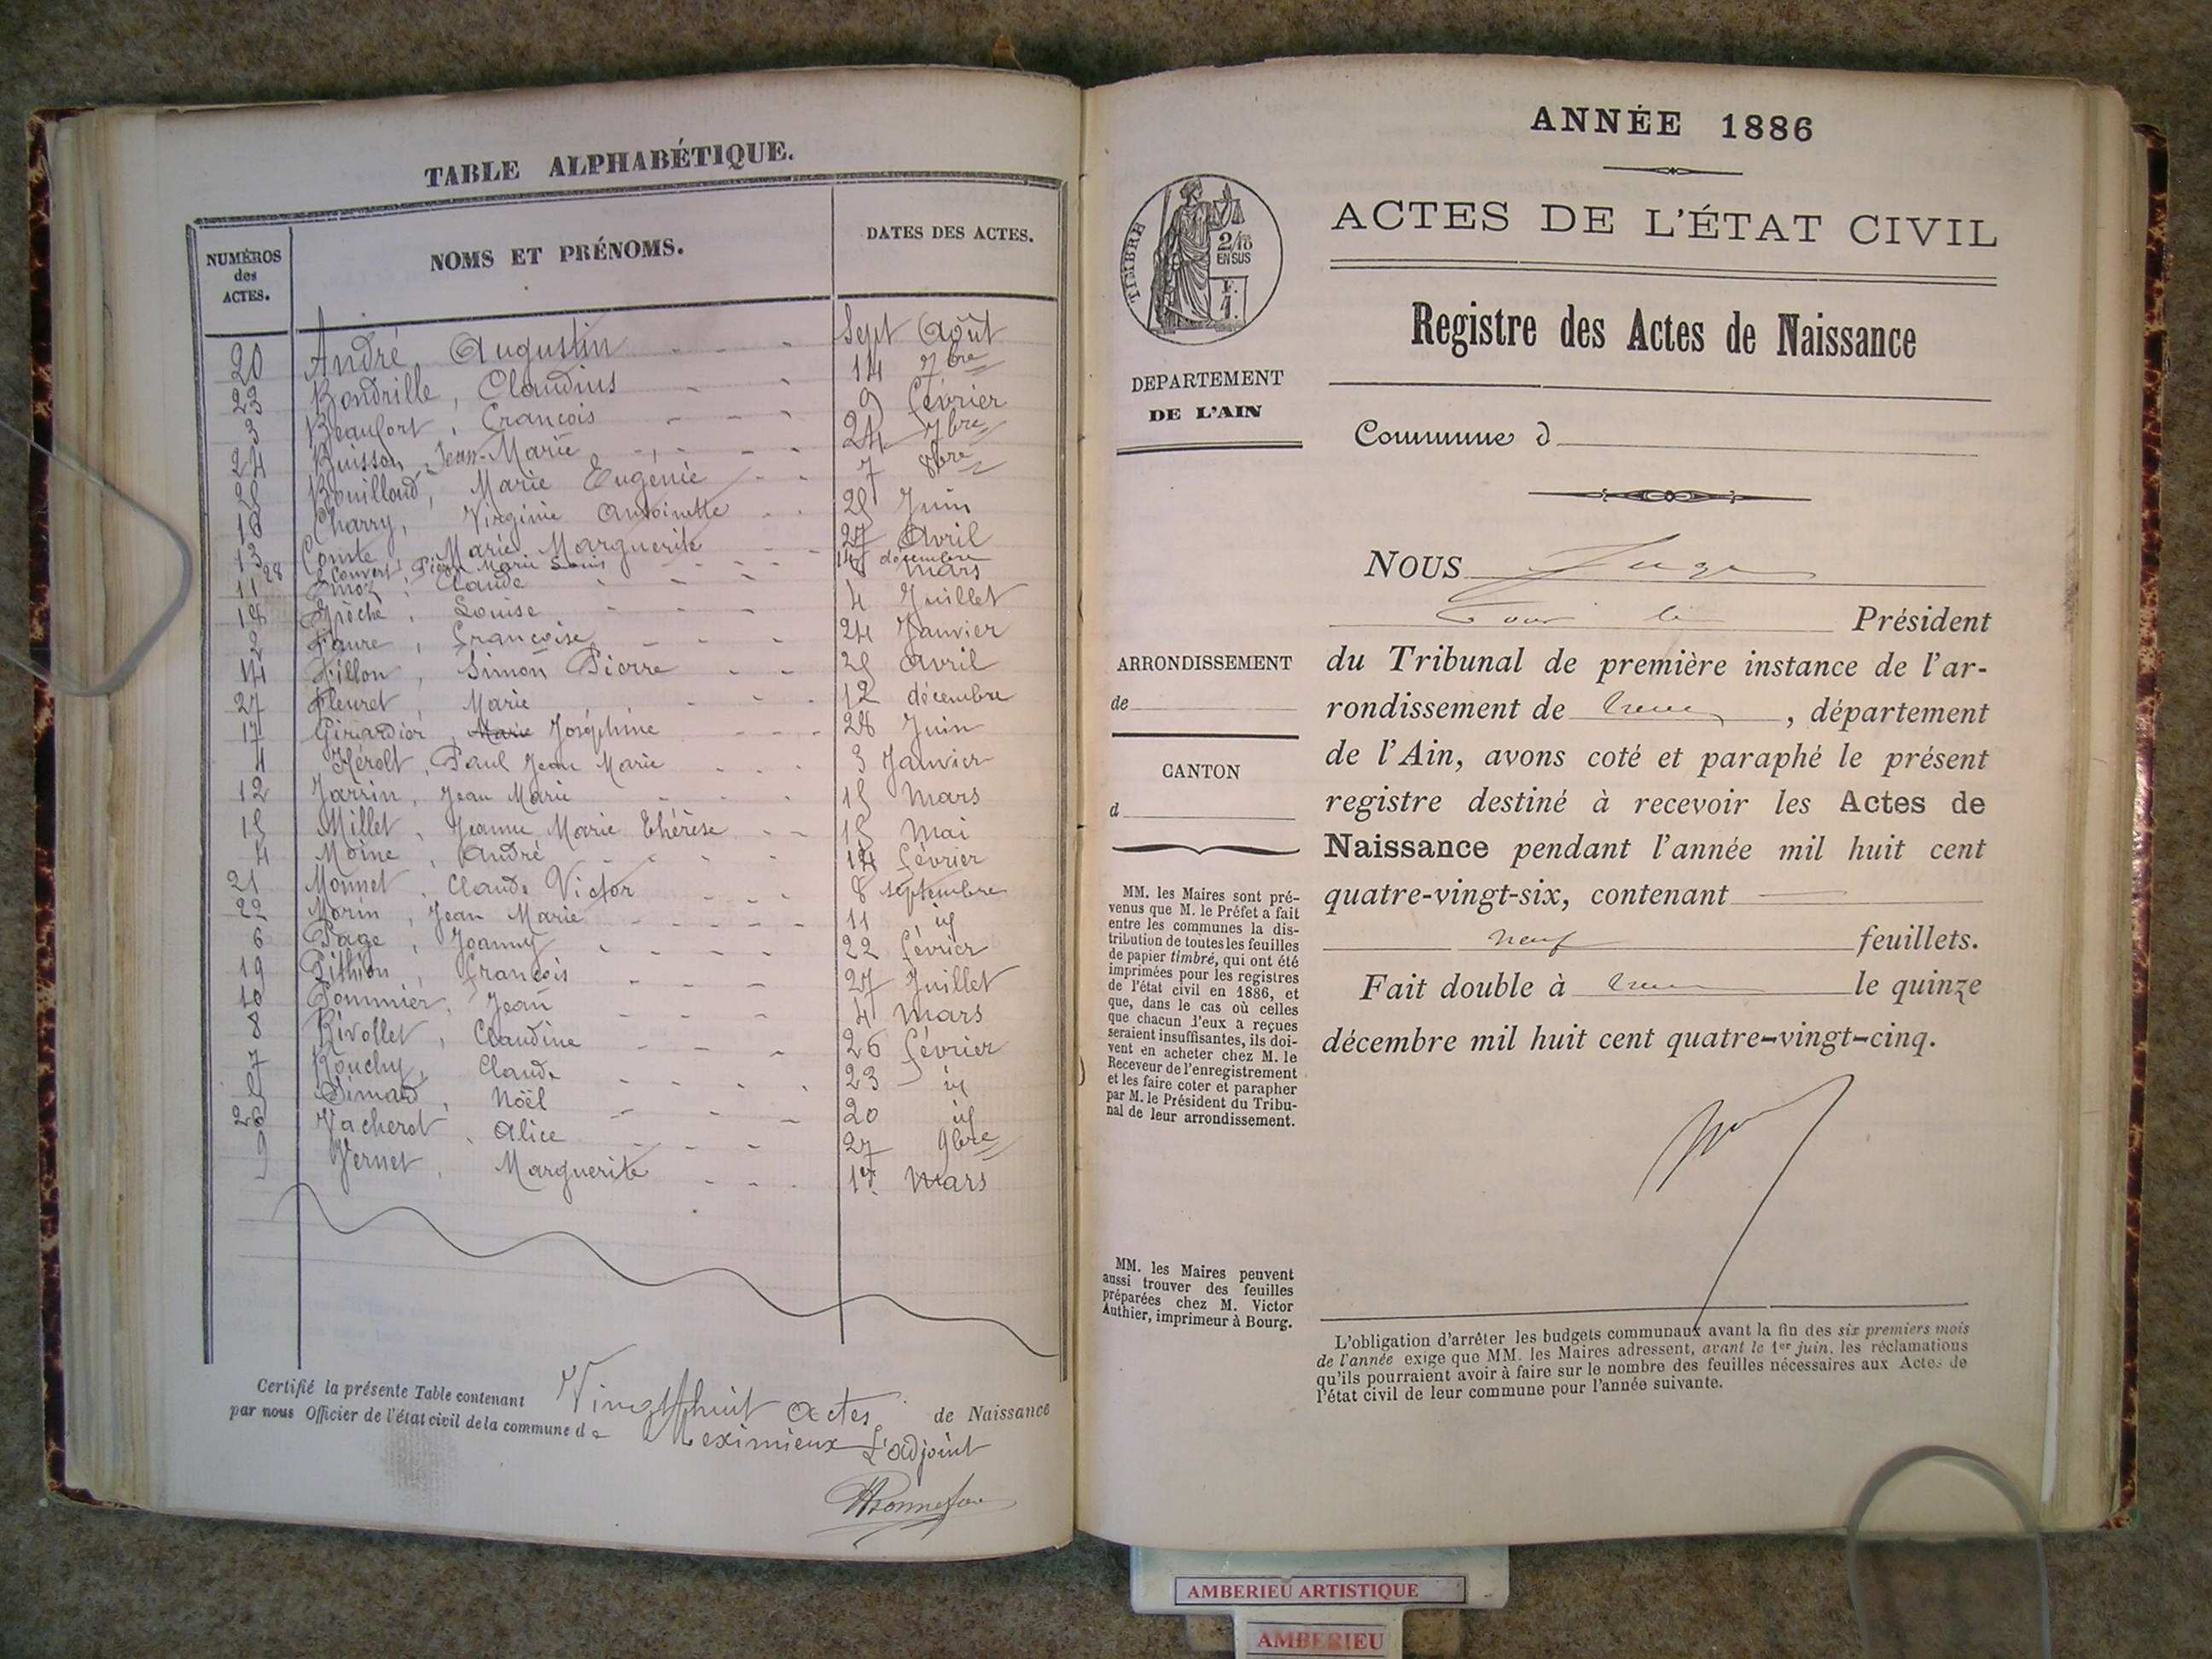 TABLE ALPHABÉTIQUE.
NUMÉROS des ACTES.
NOMS ET PRÉNOMS.
DATES DES ACTES.
20 André Augustin Sept Août
23 Bondrille, Claudius 14 7bre
3 Beaufort, François 9 février
24 Buisson, Jean-Marie 24 7bre
25 Bouilloud, Marie Eugénie 7 8bre
16 Charry, Virginie Antoinette 25 Juin
13 Comte, Marie Marguerite 27 Avril
28 Convert, Pierre Marie Louis 14 décembre
11 Claude 8 mars
18 Louise 4 Juillet
2 Faure, Françoise 24 Janvier
14 Fillon, Simon Pierre 29 avril
27 Fleuret, Marie 12 décembre
17 Girardier, Marie Joséphine 28 Juin
1 Hérolt, Paul Jean Marie 3 Janvier
12 Jarrin, Jean Marie 15 mars
15 Millet, Jeanne Marie Thérèse 15 mai
4 Moine, André 14 février
21 Monnet, Claude Victor 8 septembre
22 Morin, Jean Marie 11 id
6 Page, Joanny 22 février
19 Pithion, François 27 Juillet
10 Pommier, Jean 4 mars
8 Rivollet, Claudine 26 février
7 Rouchy, Claude 23 id
5 Simard, Noël 20 id
26 Vacherot, Alice 27 9bre
9 Vernet, Marguerite 1er mars
Certifié la présente Table contenant Vingt huit actes de Naissance
par nous Officier de l'état civil de la commune de Meximieux L'adjoint
ANNÉE 1886
ACTES DE L'ÉTAT CIVIL
TIMBRE
2/10
EN SUS
F.
1.
Registre des Actes de Naissance
DEPARTEMENT
DE L'AIN
Commune d
NOUS Juge
Pour le Président
du Tribunal de première instance de l'ar-
rondissement de , département
de l'Ain, avons coté et paraphé le présent
registre destiné à recevoir les Actes de
Naissance pendant l'année mil huit cent
quatre-vingt-six, contenant
neuf feuillets.
Fait double à le quinze
décembre mil huit cent quatre-vingt-cinq.
ARRONDISSEMENT
de
CANTON
d
MM. les Maires sont pré-
venus que M. le Préfet a fait
entre les communes la dis-
tribution de toutes les feuilles
de papier timbré, qui ont été
imprimées pour les registres
de l'état civil en 1886, et
que, dans le cas où celles
que chacun d'eux a reçues
seraient insuffisantes, ils doi-
vent en acheter chez M. le
Receveur de l'enregistrement
et les faire coter et parapher
par M. le Président du Tribu-
nal de leur arrondissement.
MM. les Maires peuvent
aussi trouver des feuilles
préparées chez M. Victor
Authier, imprimeur à Bourg.
L'obligation d'arrêter les budgets communaux avant la fin des six premiers mois
de l'année exige que MM. les Maires adressent, avant le 1er juin, les réclamations
qu'ils pourraient avoir à faire sur le nombre des feuilles nécessaires aux Actes de
l'état civil de leur commune pour l'année suivante.
AMBERIEU ARTISTIQUE
AMBERIEU